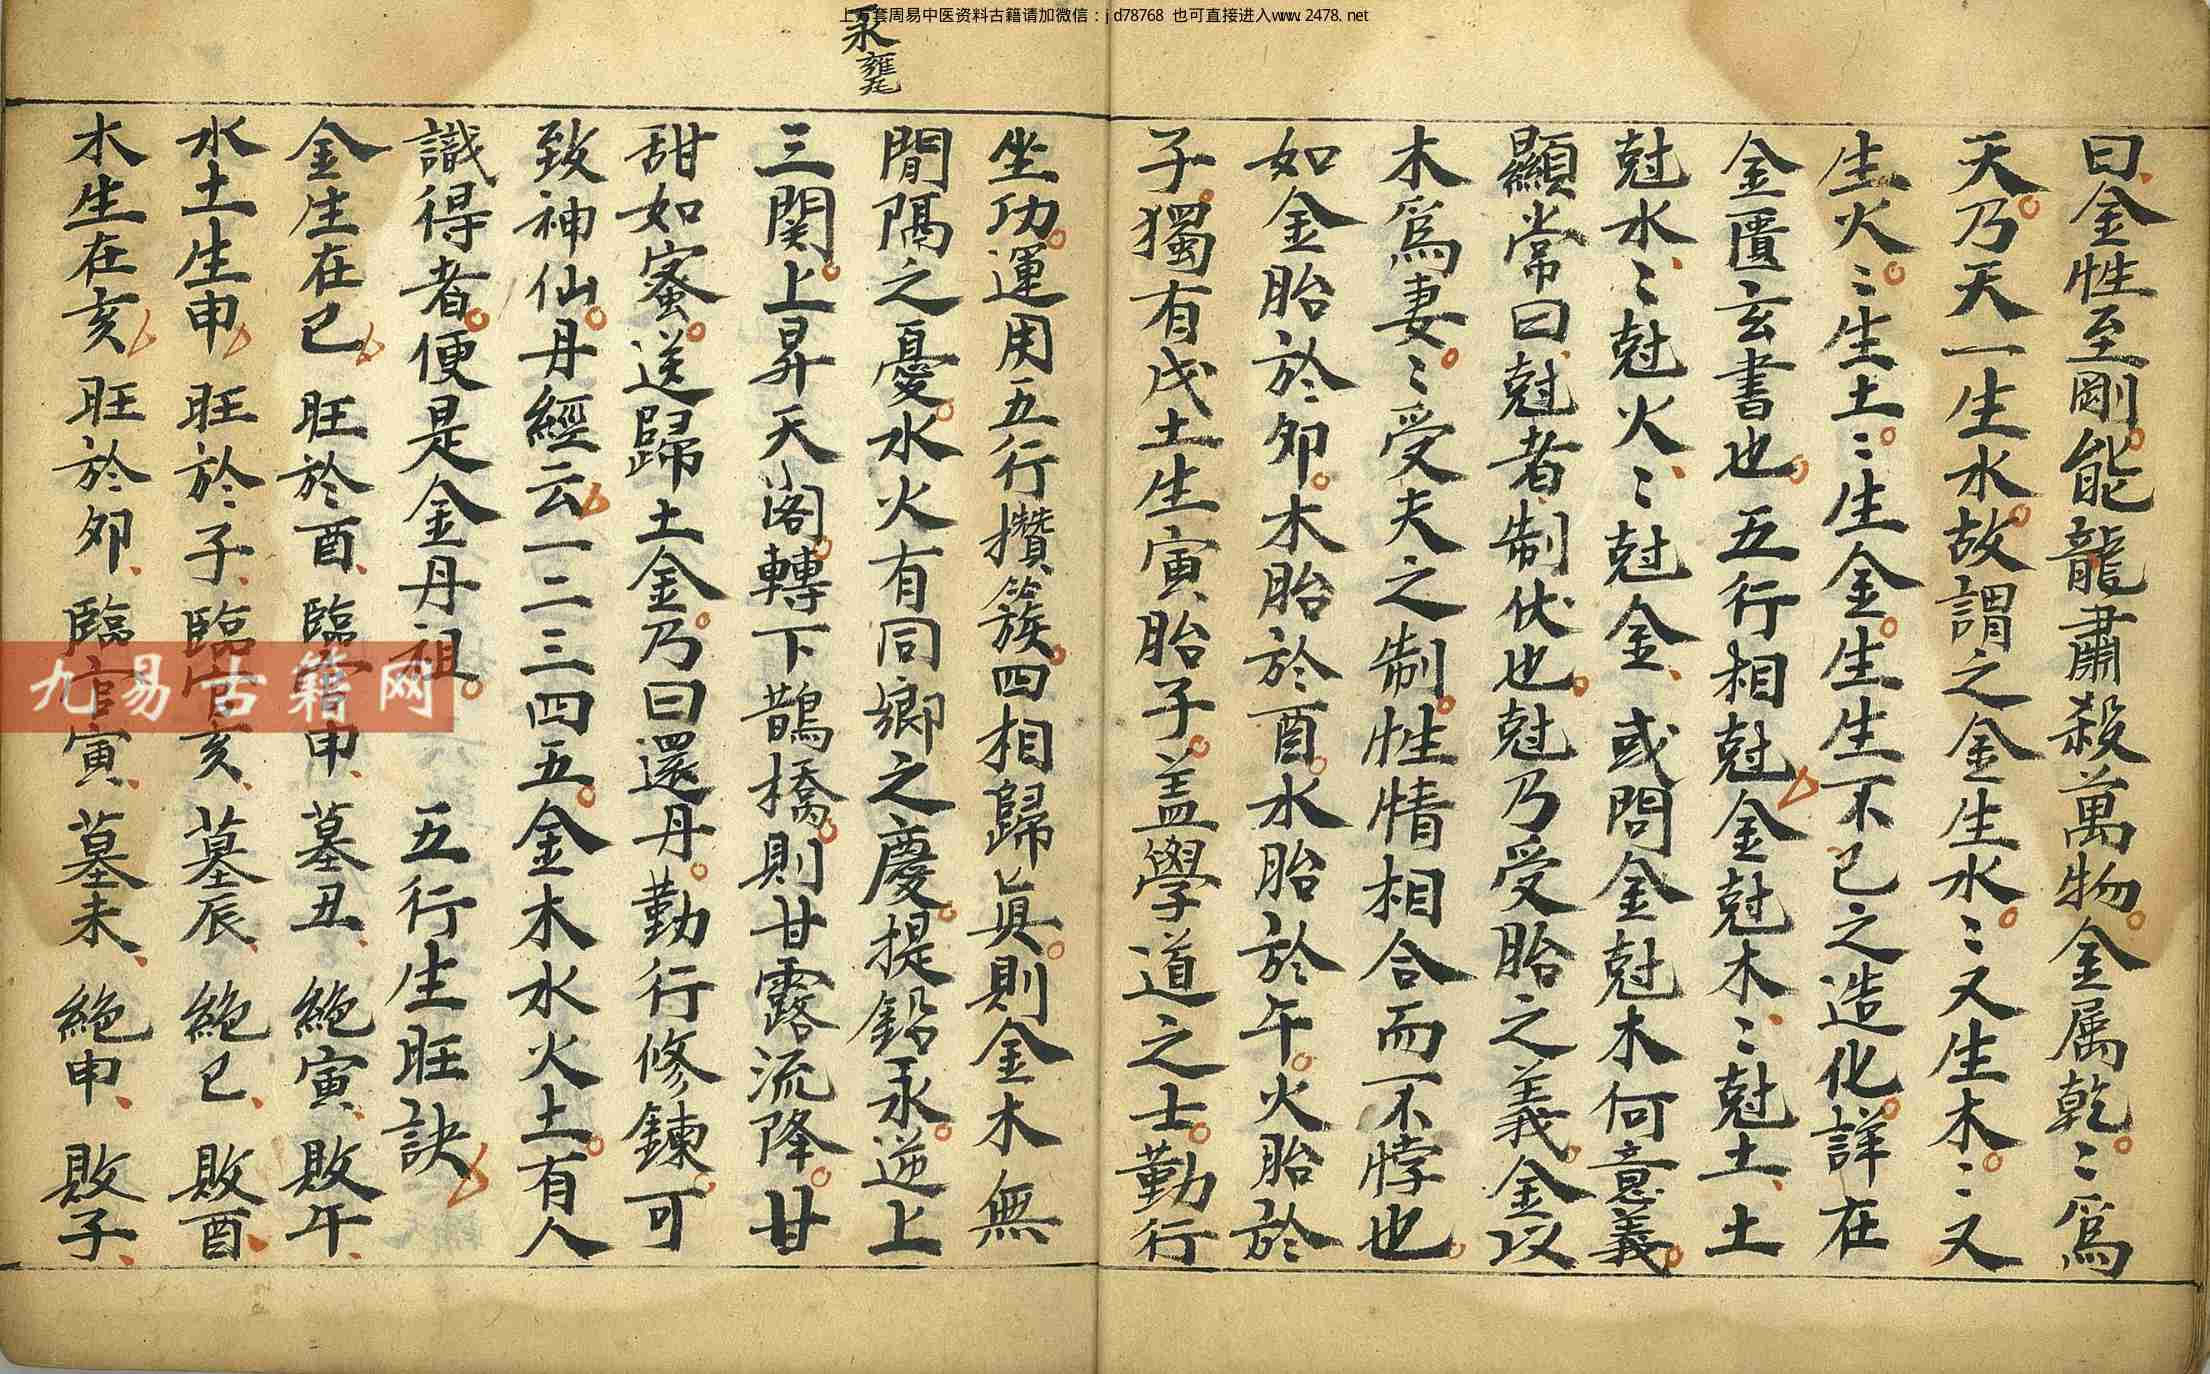 上万套周易中医资料古籍请加微信：jd78768 也可直接进入www.2478.net
曰金性至剛能龍肅殺萬物金属乾〻爲
天乃天一生水故謂之金生水〻又生木〻又
生火〻生土〻生金生生不已之造化詳在
金匱玄書也五行相尅金尅木〻尅土土
尅水〻尅火〻尅金或問金尅木何意義
顯常曰尅者制伏也尅乃受胎之義金以
木爲妻〻受夫之制性情相合而不悖也
如金胎於卯木胎於酉水胎於午火胎於
子獨有戊土生寅胎子盖學道之士勤行
坐功運用五行攢簇四相歸眞則金木無
間隔之憂水火有同鄉之慶提鉛汞逆上
三関上昇天閣轉下鵲橋則甘露流降甘
甜如蜜送歸土金乃曰還丹勤行修鍊可
致神仙丹經云一二三四五金木水火土有人
識得者便是金丹祖 五行生旺訣
金生在巳 旺於酉 臨官申 墓丑 絶寅 敗午
水土生申 旺於子 臨官亥 墓辰 絶巳 敗酉
木生在亥 旺於卯 臨官寅 墓未 絶申 敗子
汞
九易古籍网